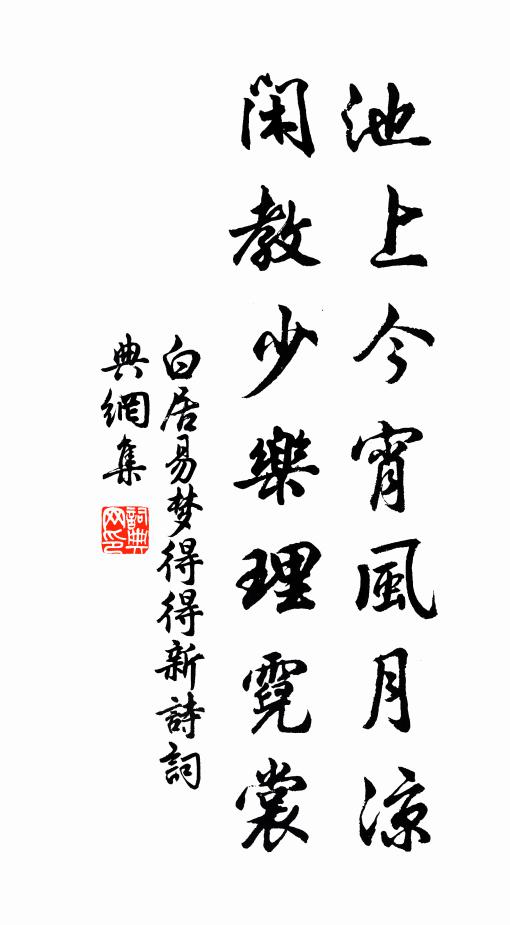 池上今宵風月涼
閑教少樂理霓裳
白居易梦得得新詩詞
典網集
詞典网印